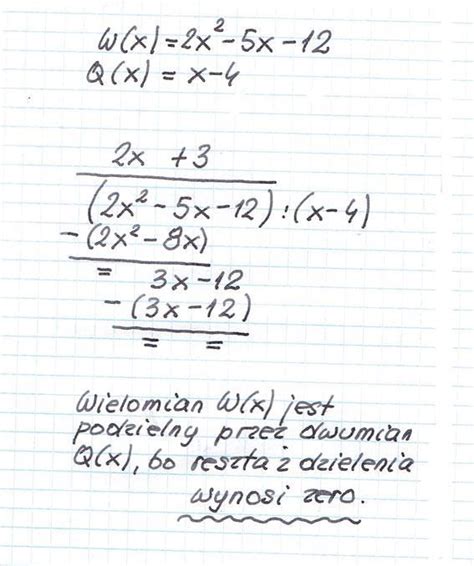 W(x)=2x²-5x-12
Q(x) = x-4
2x +3
(2x²-5x-12):(x-4)
-(2x²-8x)
= 3x-12
-(3x-12)
= =
Wielomian W(x) jest
podzielny przez dwumian
Q(x), bo reszta z dzielenia
wynosi zero.